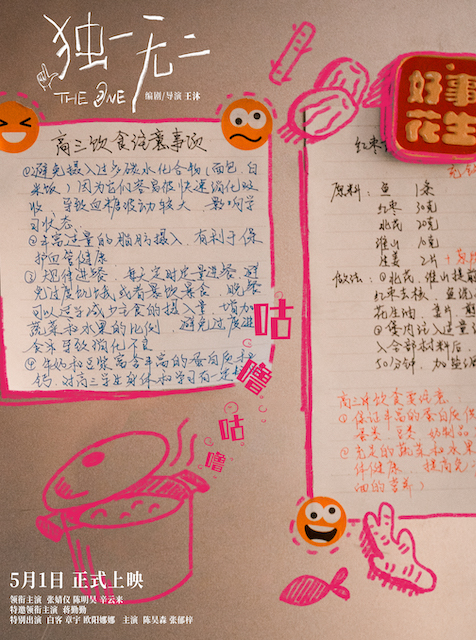 独一无二
THE ONE
编剧/导演 王沐
好事
花生
高三饮食注意事项
①避免摄入过多碳水化合物(面包、白
米饭)因为它们容易被快速消化吸
收,导致血糖波动较大,影响学
习状态
②丰富适量的脂肪摄入,有利于保
护血管健康
③规律进餐,每天定时定量进餐,避
免过度饥饿或者暴饮暴食,晚餐
可以适当减少主食的摄入量,增加
蔬菜和水果的比例,避免过度进
食而导致消化不良
④牛奶和豆浆富含丰富的蛋白质和
钙,对高三学生身体和学习有一定
红枣
原料:鱼 1条
红枣 30克
北芪 20克
淮山 10克
生姜 2片
做法:①北芪、淮山提前
红枣去核,鱼
花生油,姜片
②煲内注入适量
入全部材料后,
50分钟,加盐
咕
噜
咕
噜
高三伙食要注意
①保证丰富的蛋白质
蛋类、豆类、奶制品
②充足的蔬菜和水果
体健康,提高免
面的营养)
5月1日 正式上映
领衔主演 张婧仪 陈明昊 辛云来
特邀领衔主演 蒋勤勤
特别出演 白客 章宇 欧阳娜娜 主演 陈昊森 张郁梓